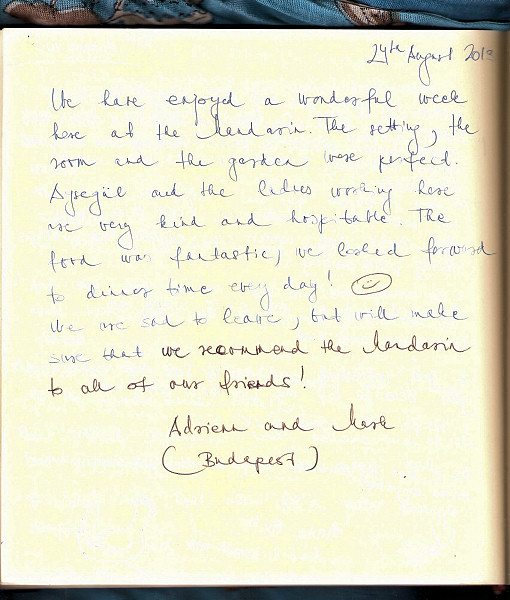 24th August 2013
We have enjoyed a wonderful week
here at the Mandarin. The setting, the
room and the garden were perfect.
Ayşegül and the ladies working here
are very kind and hospitable. The
food was fantastic, we looked forward
to dinner time every day!
We are sad to leave, but will make
sure that we recommend the Mandarin
to all of our friends!
Adrienn and Mark
(Budapest)